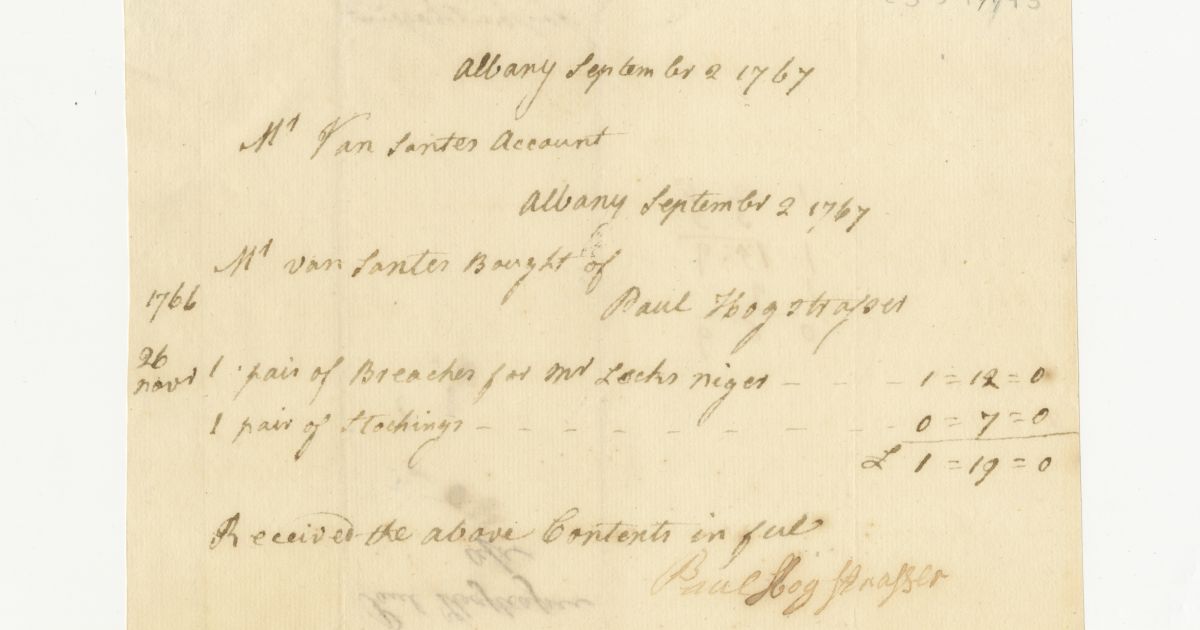 Albany September 2 1767
Mr Van Santes Account
Albany September 2 1767
Mr van Santes Bought of
1766
Paul Hogstrasser
26
novr 1 pair of Breaches for Mr Locks niger - - - 1 = 12 = 0
1 pair of Stockings - - - - - - - - - 0 = 7 = 0
£ 1 = 19 = 0
Received the above Contents in full
Paul Hogstrasser